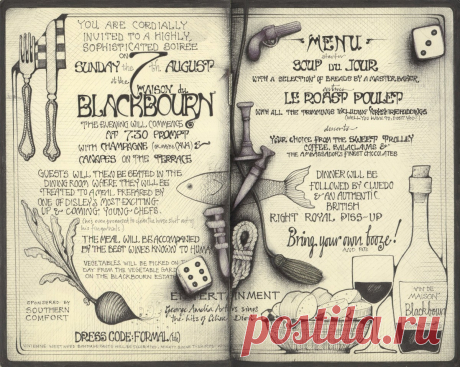 YOU ARE CORDIALLY
INVITED TO A HIGHLY
SOPHISTICATED SOIREE
ON
SUNDAY the 7th AUGUST
at the MAISON du
BLACKBOURN
THE EVENING WILL COMMENCE @
AT 7:30 PROMPT
WITH CHAMPAGNE &
CANAPES ON THE TERRACE
GUESTS WILL THEN BE SEATED IN THE
DINING ROOM, WHERE THEY WILL BE
TREATED TO A MEAL PREPARED BY
ONE OF DISLEY'S MOST EXCITING
UP & COMING YOUNG CHEFS.
THE MEAL WILL BE ACCOMPANIED
BY THE BEST WINES KNOWN TO HUMA
VEGETABLES WILL BE PICKED ON
DAY FROM THE VEGETABLE GARD
ON THE BLACKBOURN ESTATE
SPONSERED BY
SOUTHERN
COMFORT
ENTERTAINMENT
DRESS CODE: FORMAL(ish)
MENU
starter
SOUP DU JOUR
WITH A SELECTION OF BREADS BY A MASTER BAKER
LE ROAST POULET
WITH ALL THE TRIMMINGS INCLUDING
desserts
YOUR CHOICE FROM THE SWEET TROLLEY
COFFEE, BALACLAVAS &
THE AMBASSADORS FINEST CHOCOLATES
DINNER WILL BE
FOLLOWED BY CLUEDO
& AN AUTHENTIC
BRITISH
RIGHT ROYAL PISS-UP
Bring your own booze!
VIN DE
MAISON
Blackbourn
postila.ru